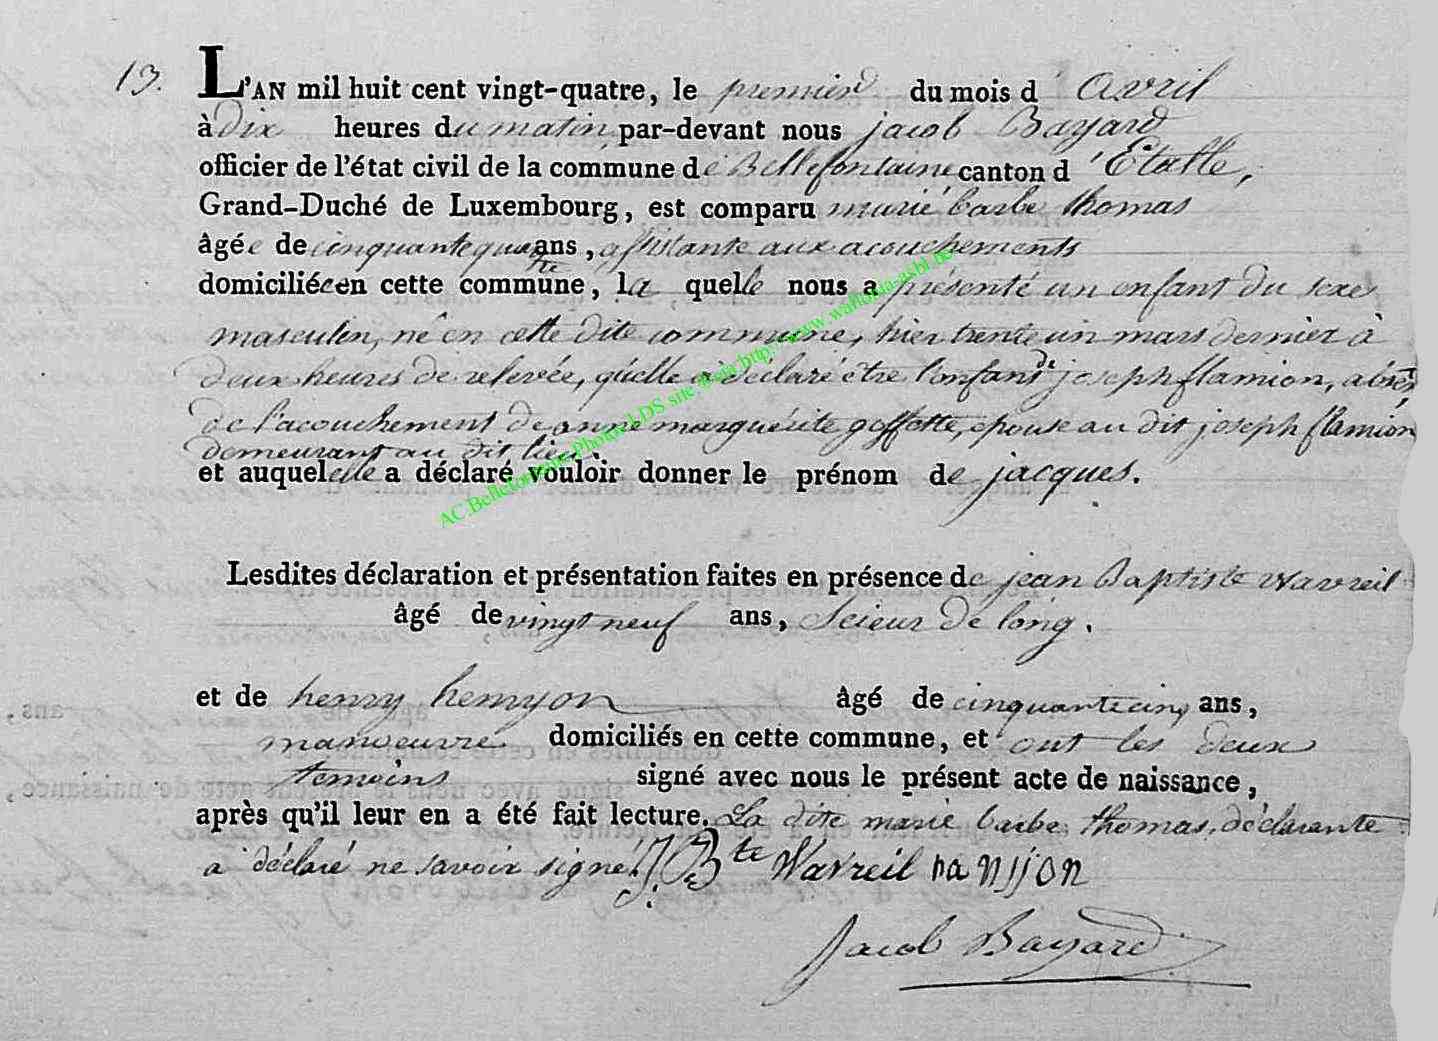 13. L'AN mil huit cent vingt-quatre, le premier du mois d'avril
à dix heures du matin, par-devant nous jacob Bayard
officier de l'état civil de la commune de Bellefontaine canton d'Etalle,
Grand-Duché de Luxembourg, est comparu marie barbe thomas
âgée de cinquante quatre ans, assistante aux acouchements
domiciliée en cette commune, la quelle nous a présenté un enfant du sexe
masculin, né en cette dite commune, hier trente un mars dernier à
deux heures de relevée, qu'elle a déclaré être l'enfant de joseph flamion, absent,
de l'acouchement de anne marguérite goffette, epouse au dit joseph flamion
demeurant au dit lieu
et auquel elle a déclaré vouloir donner le prénom de jacques.
Lesdites déclaration et présentation faites en présence de jean Baptiste Wavreil
âgé de vingt neuf ans, Scieur de long.
et de henry hemyon âgé de cinquante cinq ans,
manoeuvre domiciliés en cette commune, et ont les deux
temoins signé avec nous le présent acte de naissance,
après qu'il leur en a été fait lecture. La dite marie barbe thomas, déclarante
a déclaré ne savoir signé. J. Bte Wavreil
Jacob Bayard
AC.Bellefontaine Photo wallonia-asbl.be